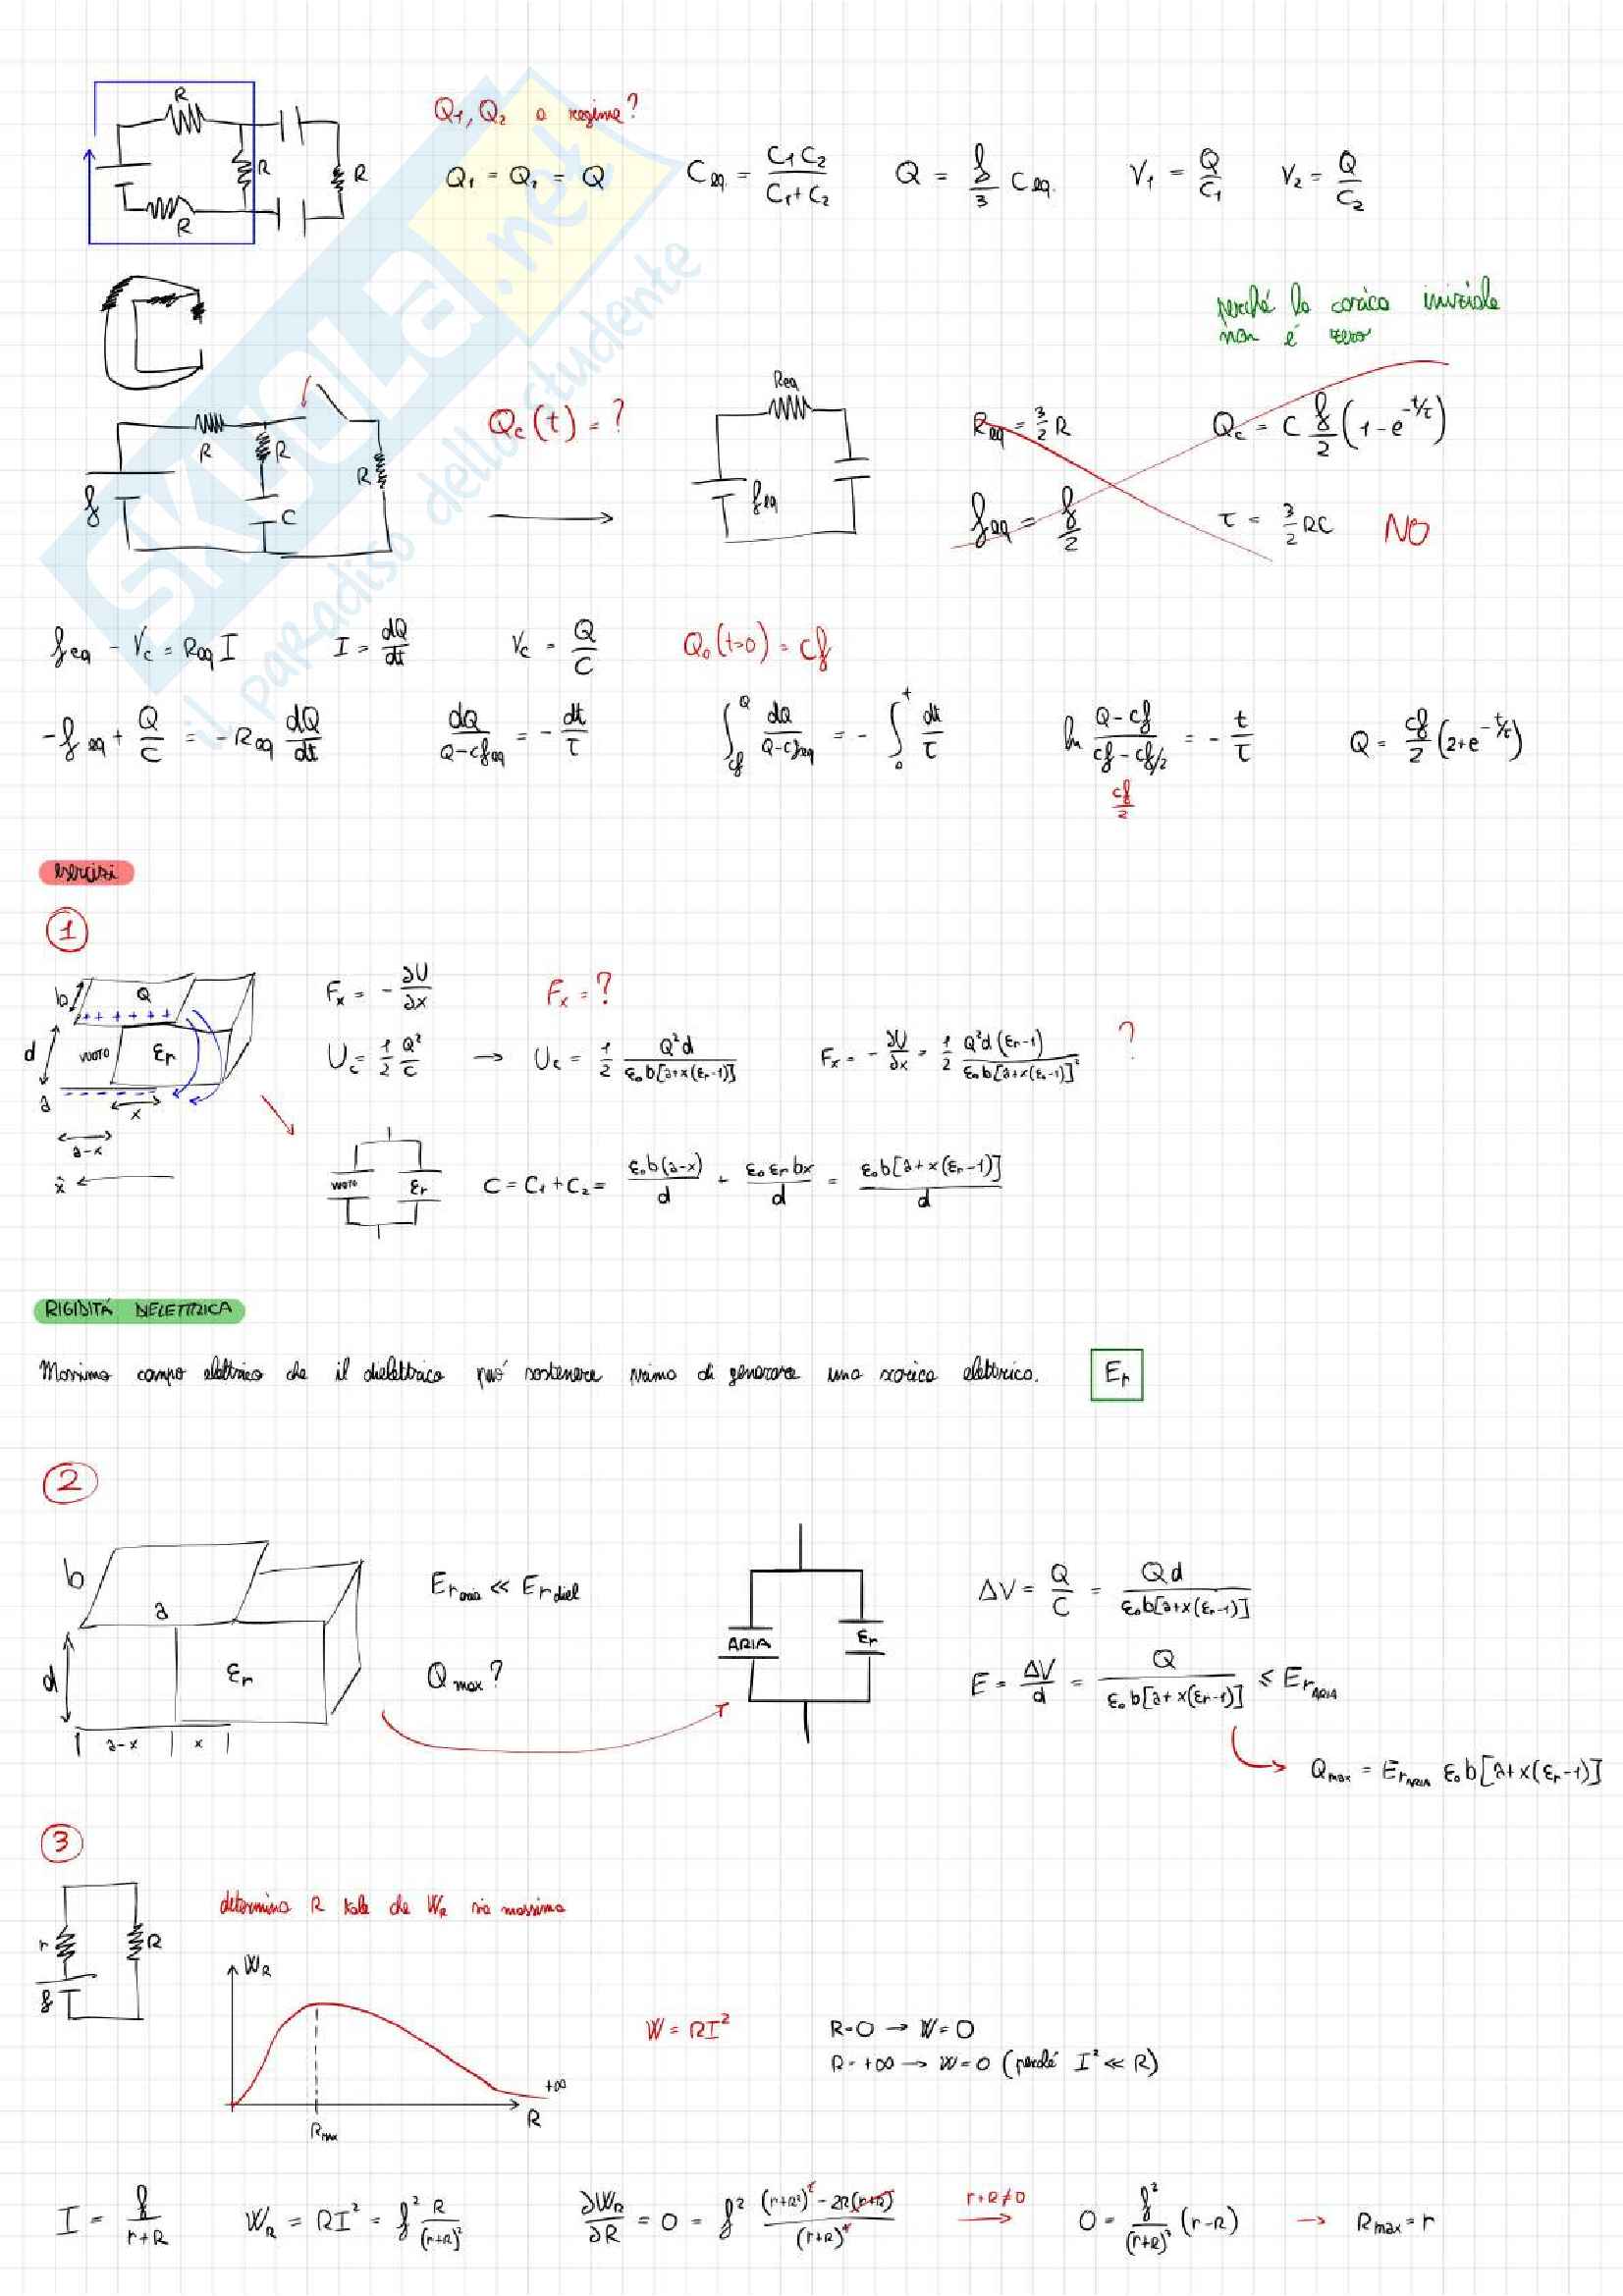 R
R
R
R
Q₁, Q₂ a regime?
Q₁ = Q₂ = Q
C_eq. = C₁C₂ / (C₁+C₂)
Q = f/3 C_eq.
V₁ = Q/C₁
V₂ = Q/C₂
SKUOLA.net
il paradiso dello studente
perché la carica iniziale
non é zero
f
R
R
C
R
Q_c(t) = ?
R_eq
f_eq
R_eq = 3/2 R
Q_c = C f/2 (1-e^(-t/τ))
f_eq = f/2
τ = 3/2 RC
NO
f_eq - V_c = R_eq I
I = dQ/dt
V_c = Q/C
Q₀(t=0) = cf
-f_eq + Q/C = -R_eq dQ/dt
dQ/(Q-cf_eq) = - dt/τ
∫_cf^Q dQ/(Q-cf_eq) = - ∫_0^t dt/τ
ln (Q-cf)/(cf-cf/2) = - t/τ
Q = cf/2 (2+e^(-t/τ))
cf/2
esercizi
1
b
Q
+ + + + + +
d
VUOTO
εr
a
x
a-x
x̂
F_x = - ∂U/∂x
F_x = ?
U_c = 1/2 Q²/C → U_c = 1/2 Q²d / (ε₀b[a+x(εr-1)])
F_x = - ∂U/∂x = 1/2 Q²d(εr-1) / (ε₀b[a+x(εr-1)]²)
?
VUOTO
εr
C = C₁ + C₂ = ε₀b(a-x)/d + ε₀εr bx/d = ε₀b[a+x(εr-1)]/d
RIGIDITÁ DIELETTRICA
Massimo campo elettrico che il dielettrico puó sostenere prima di generare una scarica elettrica.
Er
2
b
a
d
εr
a-x
x
Er_aria ≪ Er_diel
Q_max?
ARIA
εr
ΔV = Q/C = Qd / (ε₀b[a+x(εr-1)])
E = ΔV/d = Q / (ε₀b[a+x(εr-1)]) ≤ Er_ARIA
Q_max = Er_ARIA ε₀b[a+x(εr-1)]
3
r
R
f
determina R tale che W_R sia massima
W_R
+∞
R
R_MAX
W = RI²
R=0 → W=0
R=+∞ → W=0 (perché I² ≪ R)
I = f/(r+R)
W_R = RI² = f² R/(r+R)²
∂W_R/∂R = 0 = f² ((r+R²)² - 2R(r+R))/(r+R)⁴
r+R≠0
→
0 = f²/(r+R)³ (r-R)
→ R_max = r